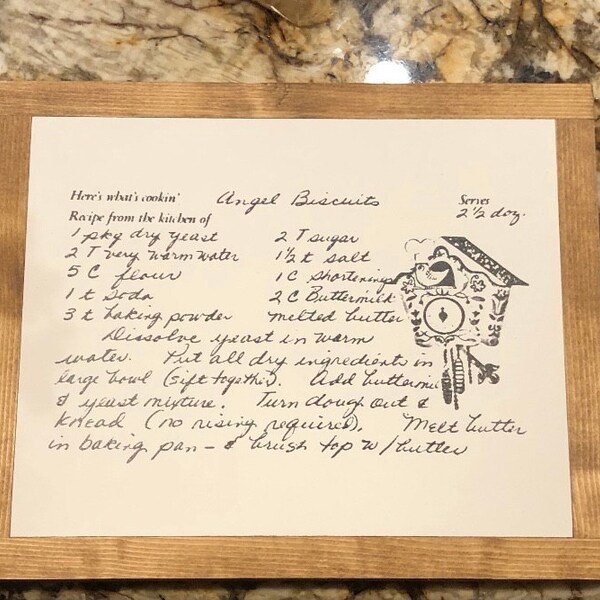 Here's what's cookin' Angel Biscuits Serves
Recipe from the kitchen of 2 ½ doz.
1 pkg dry yeast 2 T sugar
2 T very warm water 1½ t salt
5 C flour 1 C shortening
1 t soda 2 C Buttermilk
3 t baking powder melted butter
Dissolve yeast in warm
water. Put all dry ingredients in
large bowl (sift together). Add buttermilk
& yeast mixture. Turn dough out &
knead (no rising required). Melt butter
in baking pan - & brush top w/butter